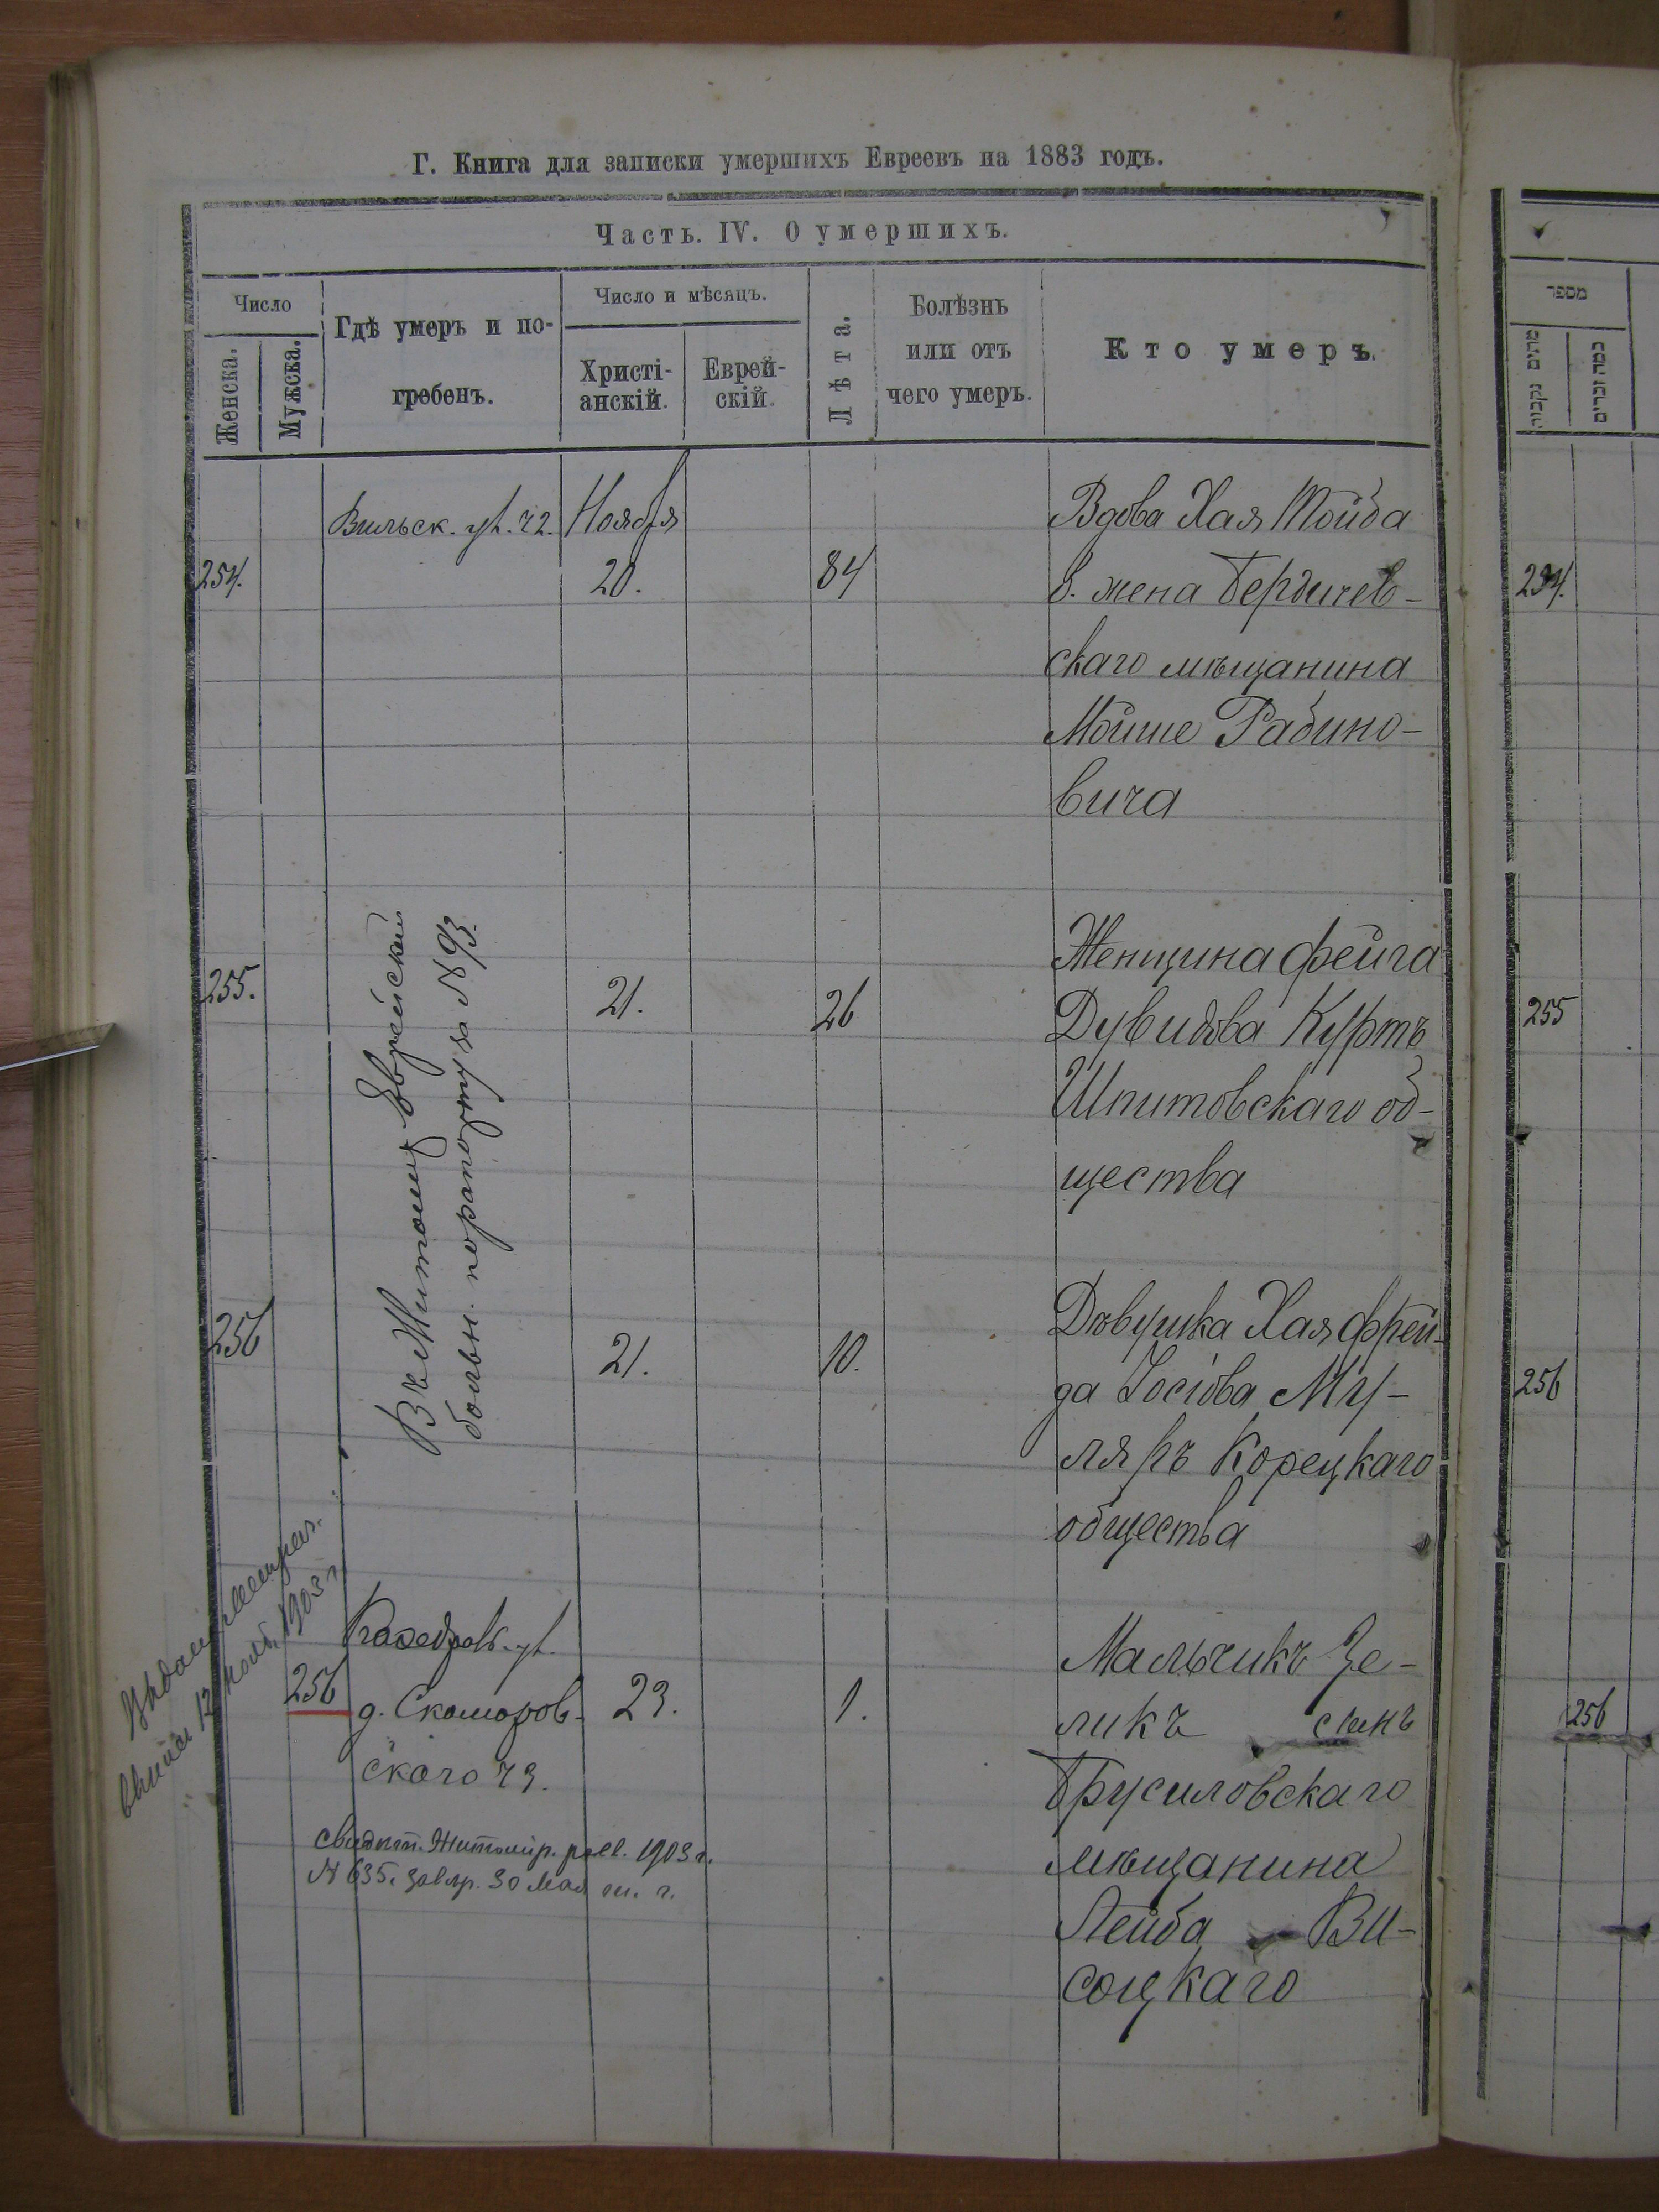 Г. Книга для записки умершихъ Евреевъ на 1883 годъ.
Часть. IV. О умершихъ.
Число
Женска.
Мужска.
Гдѣ умеръ и по-
гребенъ.
Число и мѣсяцъ.
Христі-
анскій.
Еврей-
скій.
Лѣта.
Болѣзнь
или отъ
чего умеръ.
Кто умеръ.
254.
Вильск. ул. 72.
Ноября
20.
84
Вдова Хая Тойба
б. жена Бердичев-
скаго мѣщанина
Мойше Рабино-
вича
255.
Въ Житомир Еврейской
больн. по рапорту за N 93.
21.
26
Женщина Фейга
Дувидова Куртъ
Шпитовскаго об-
щества
256
21.
10.
Дѣвушка Хая Фрей-
да Іосіова Му-
ляръ Корецкаго
общества
256
Кафедраль. ул.
д. Скоморов-
скаго 73.
23.
1.
Мальчикъ Зе-
ликъ сынъ
Брусиловскаго
мѣщанина
Лейба Ви-
соцкаго
свидѣт. Житомір. 1903 г.
N 635. 30 Мая т. г.
12 1903 г.
מספר
254.
255
256
256